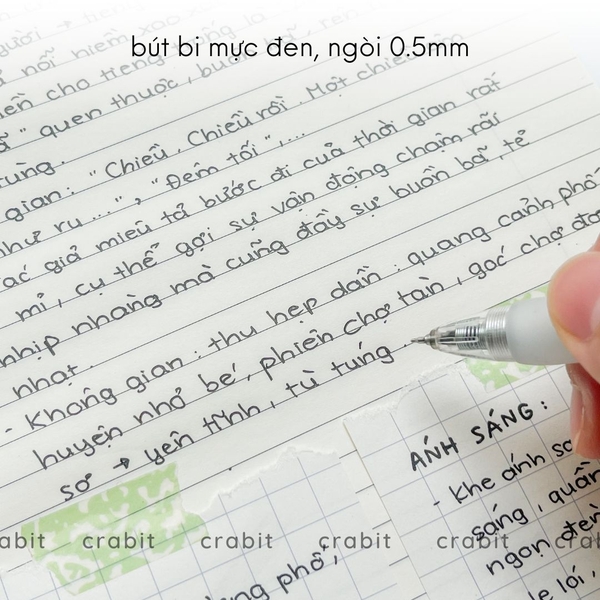 bút bi mực đen, ngòi 0.5mm
nổi
cho tiếng
" quen thuộc, buồn
gian: "Chiều, Chiều rồi. Một chiều
như ru ...", "Đêm tối",...
giả miêu tả bước đi của thời gian rất
mỉ, cụ thể gợi sự vận động chậm rãi
nhịp nhàng mà cũng đầy sự buồn bã, tẻ
nhạt.
- Không gian: thu hẹp dần: quang cảnh phố
huyện nhỏ bé, phiên chợ tàn, góc chợ
sơ → yên tĩnh, tù túng
ÁNH SÁNG:
- khe ánh
sáng,
ngọn đèn
lói,
phố,
crabit crabit crabit crabit